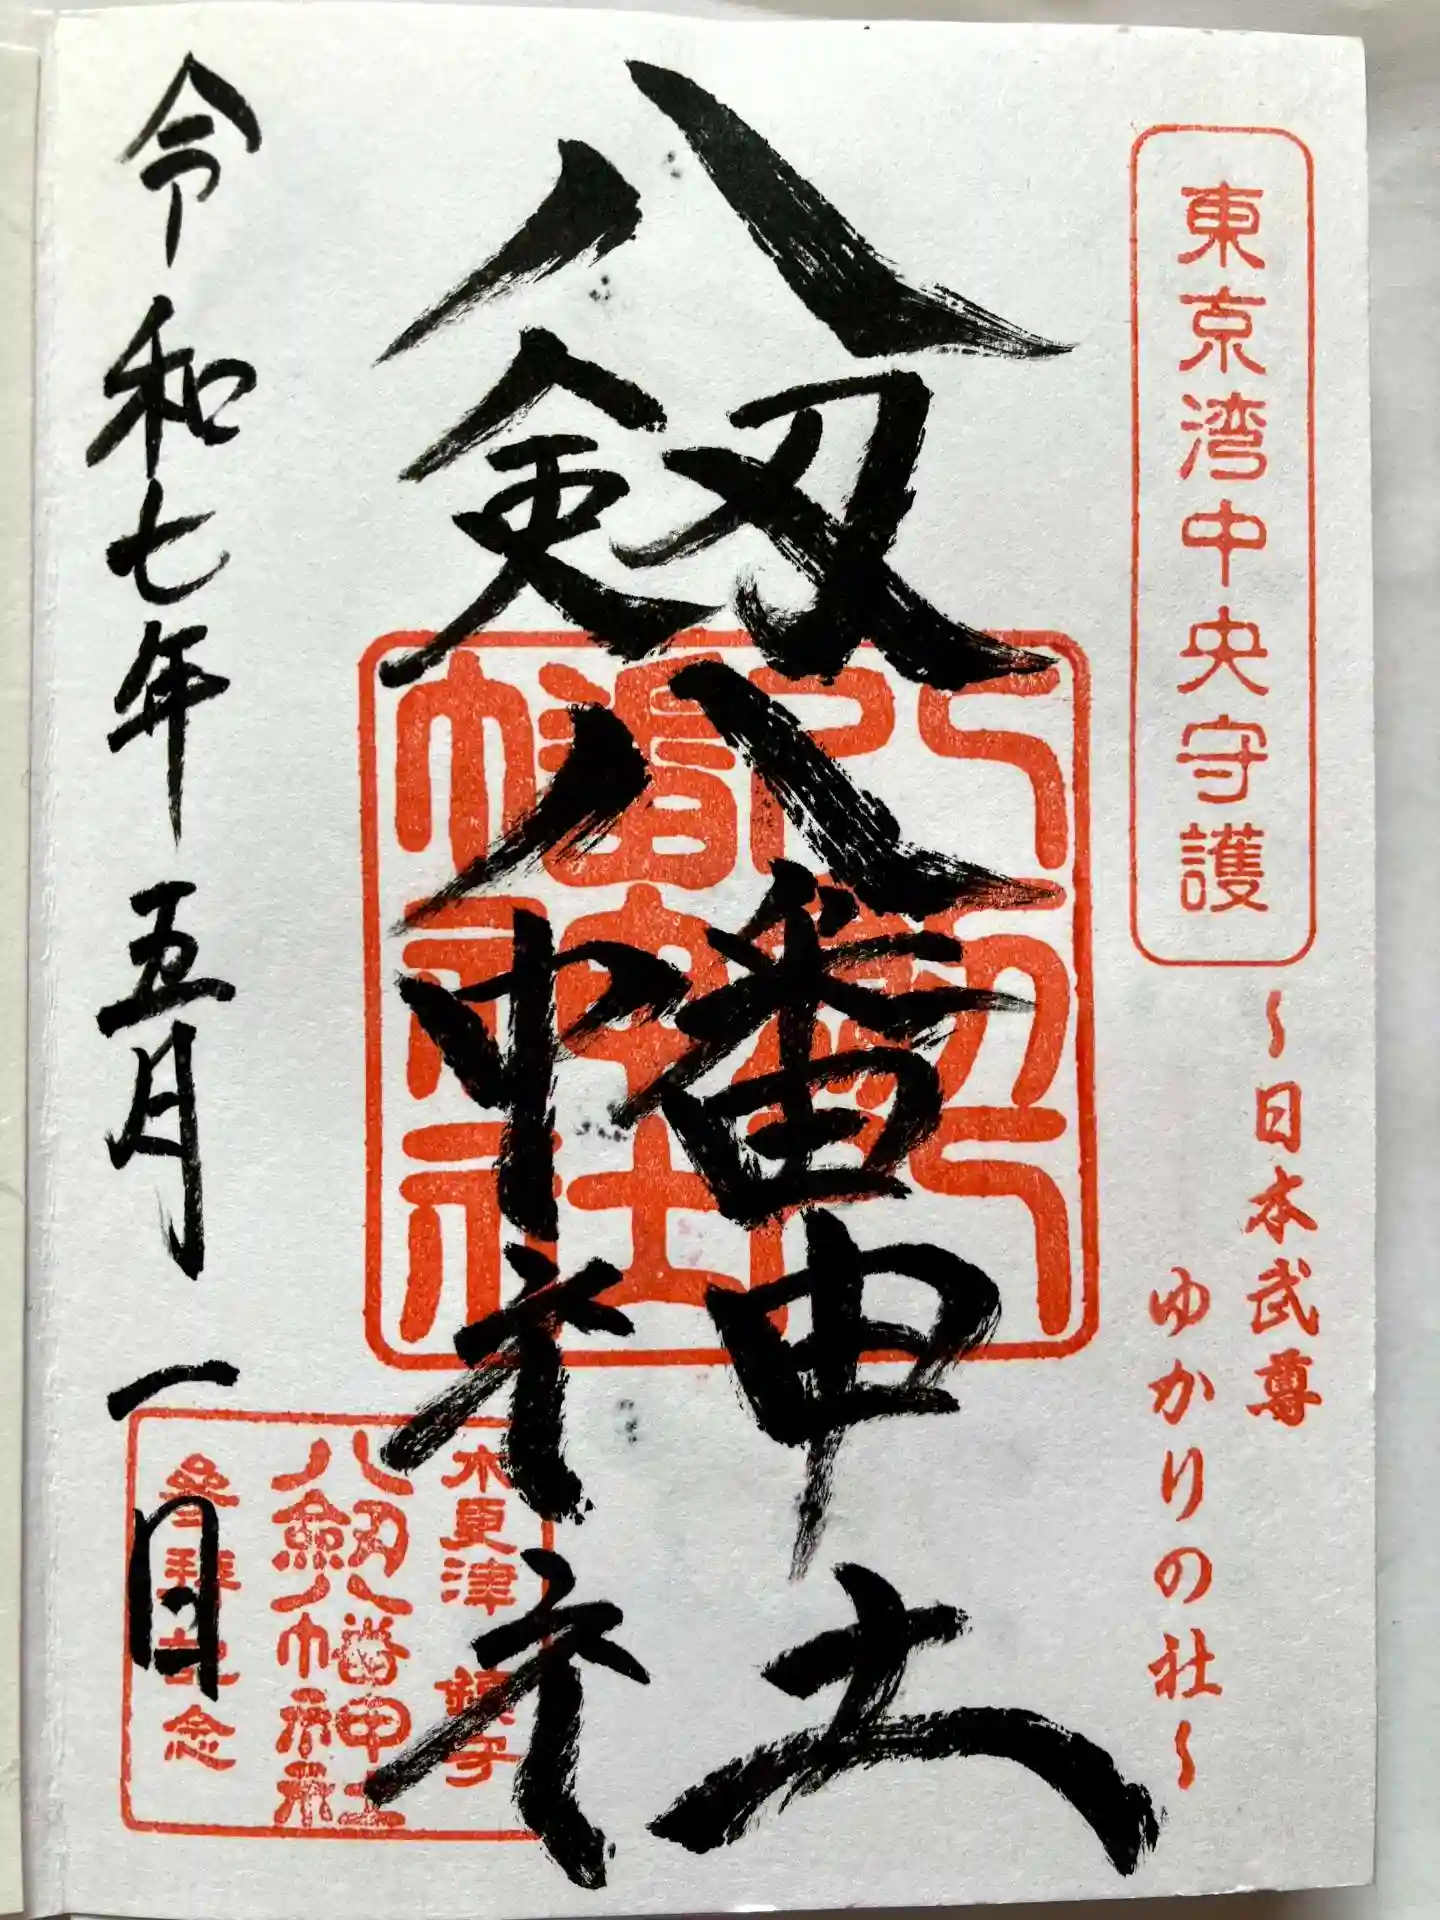 東京湾中央守護
~日本武尊
ゆかりの社~
八剱八幡神社
八剱八幡神社
木更津 鎮守
八剱八幡神社
参拝記念
令和七年五月一日